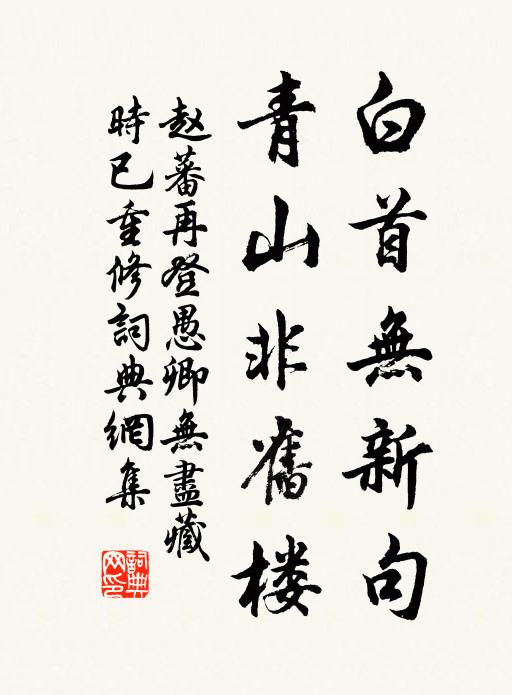 白首無新句
青山非舊楼
赵蕃再登愚卿無盡藏
時已重修詞典網集
詞典网印